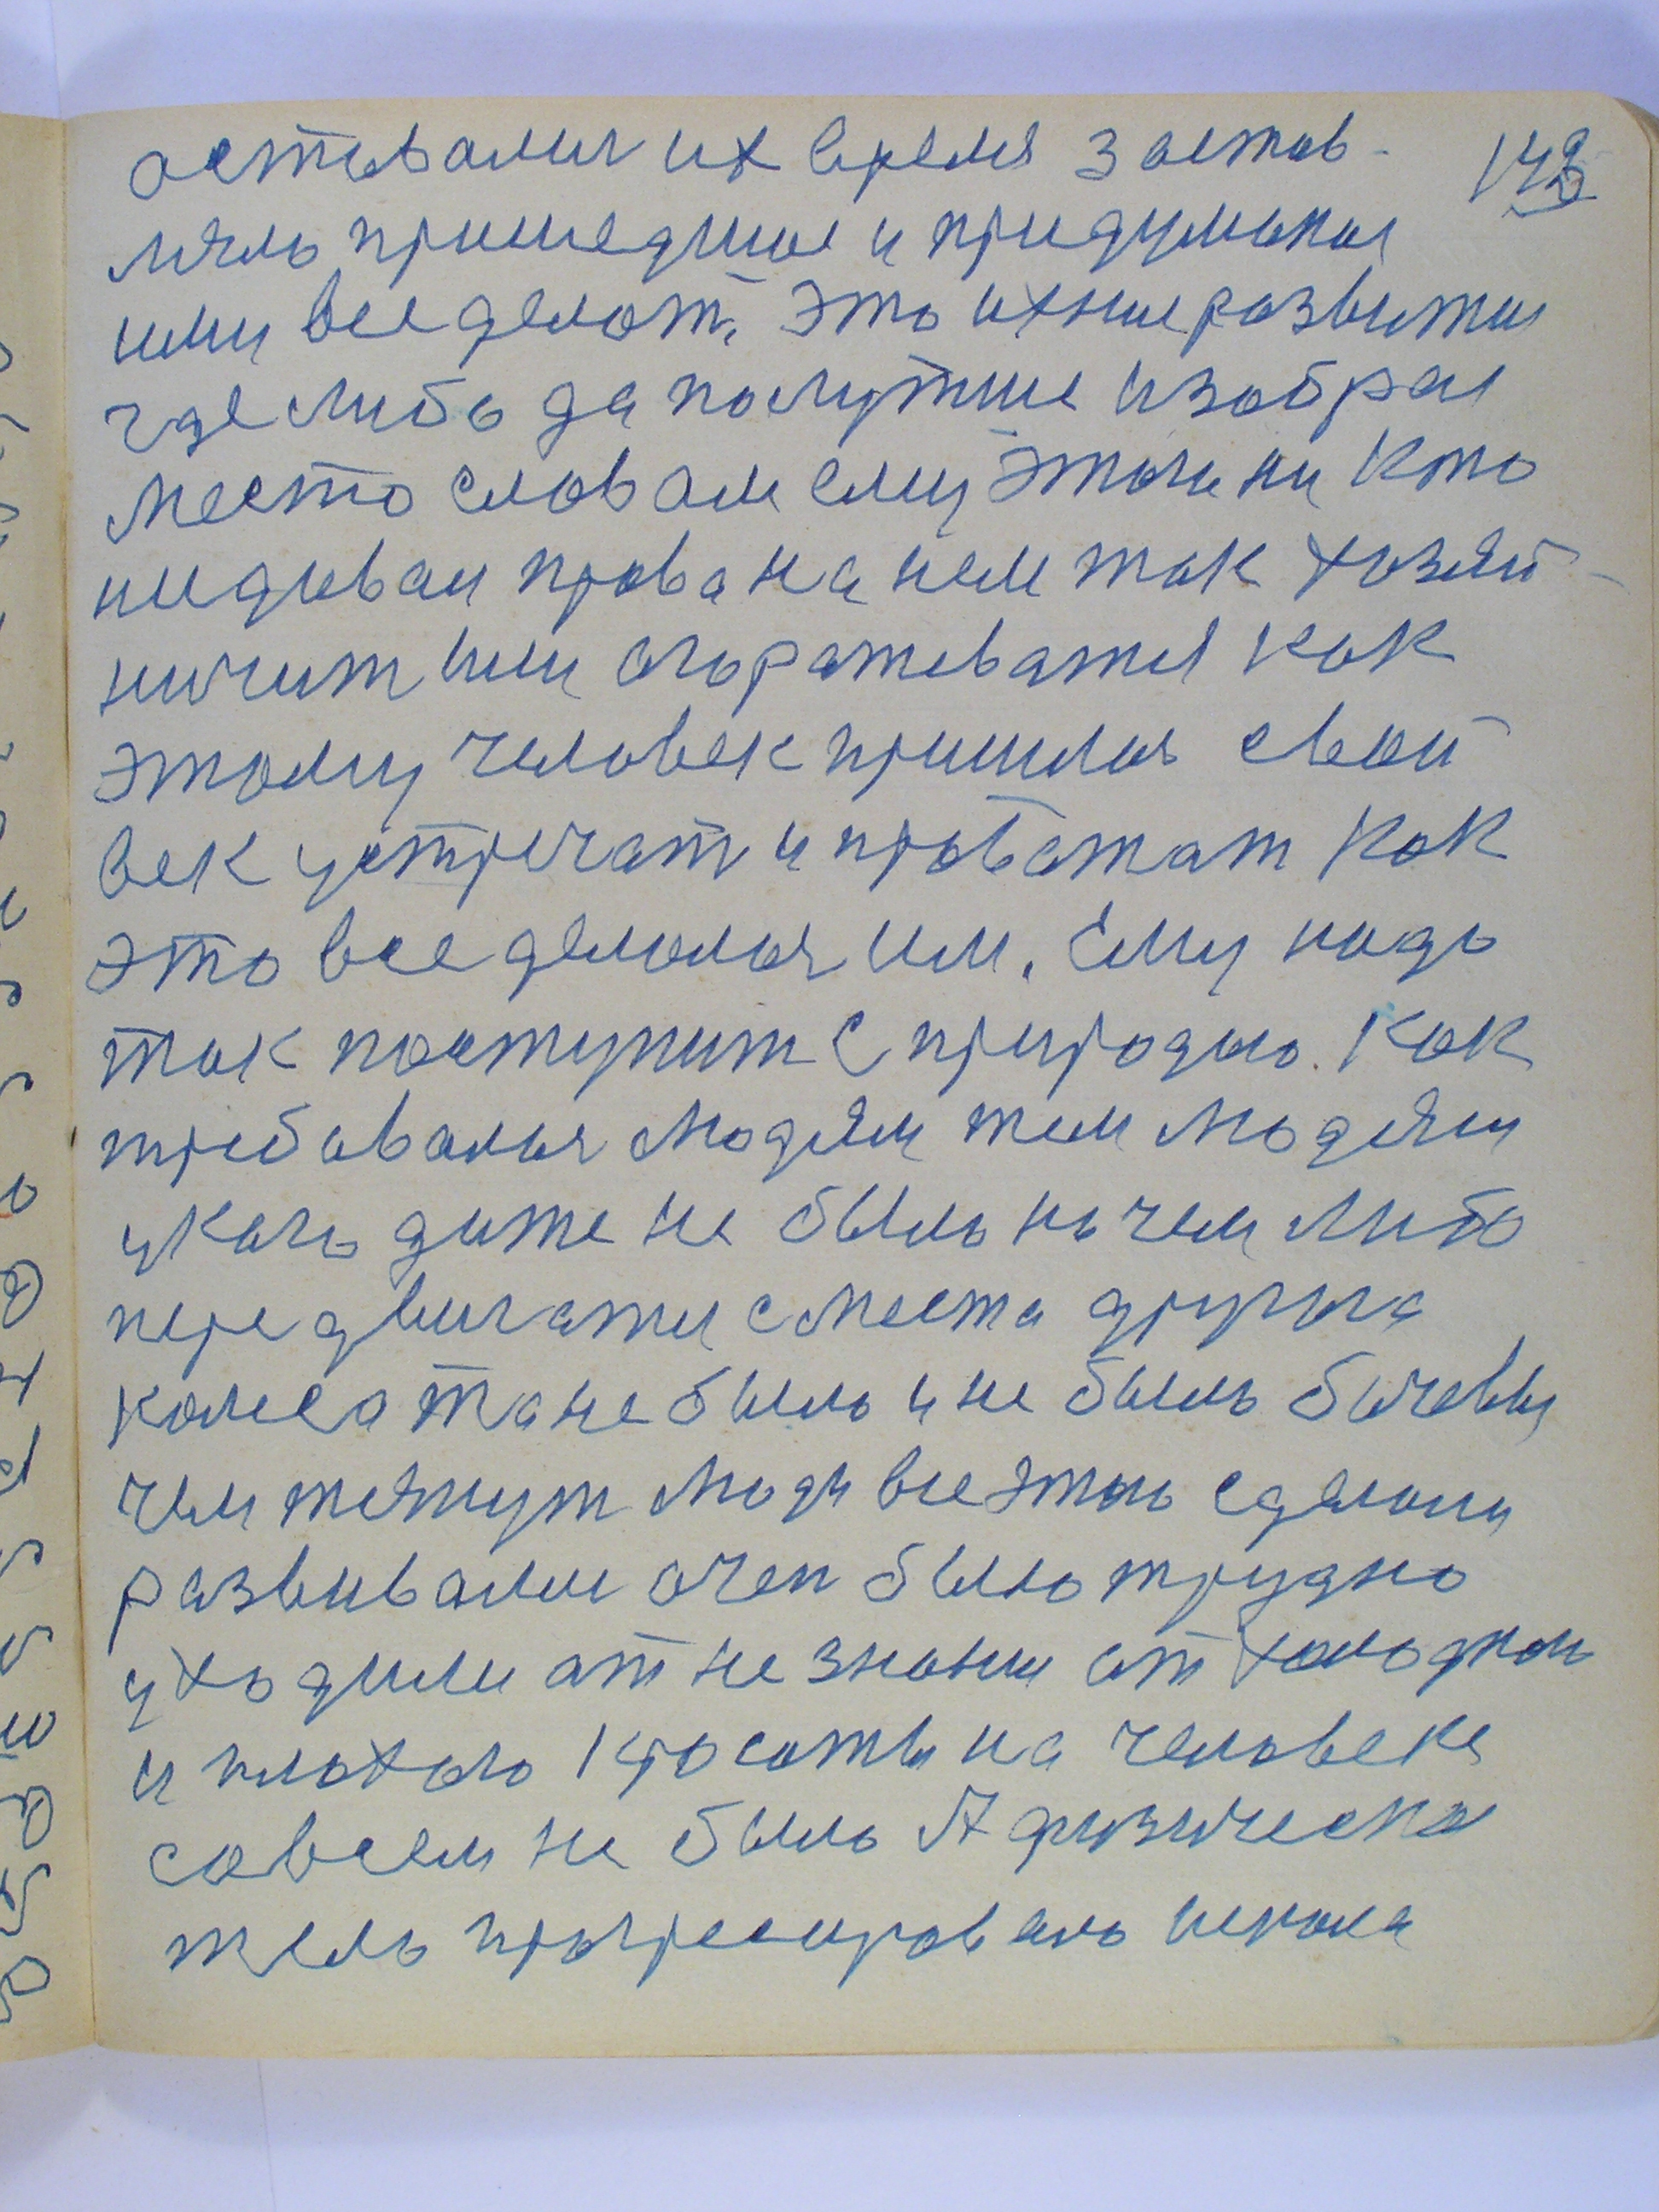 143
оставалис их время застав-
ляло пришедшие и придуманая
ими все делат, это ихние развитие
где либо да полутше изобрал
место словам ему этаги ни кто
недавал права на нем так хозяй-
ничит или огоратеватся как
этому человек пришлос свой
век устречат и провожат как
это все делалос им. Ему надо
так поступит с природаю. как
требавалос людям тем людям
укаго даже не было на чем либо
передвигатся с места другога
колеса та не было и не было бичевы
чем тянут люди все этаго сделали
развивали очен было трудно
уходили ат незнании ат холоднаго
и плохаго красоты на человеке
совсем не было А физическае
тело прогресировало школа